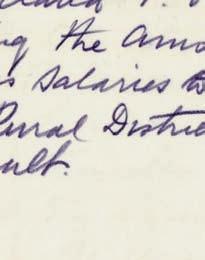 ng the amo
s salaries to
Rural Distri
ult.